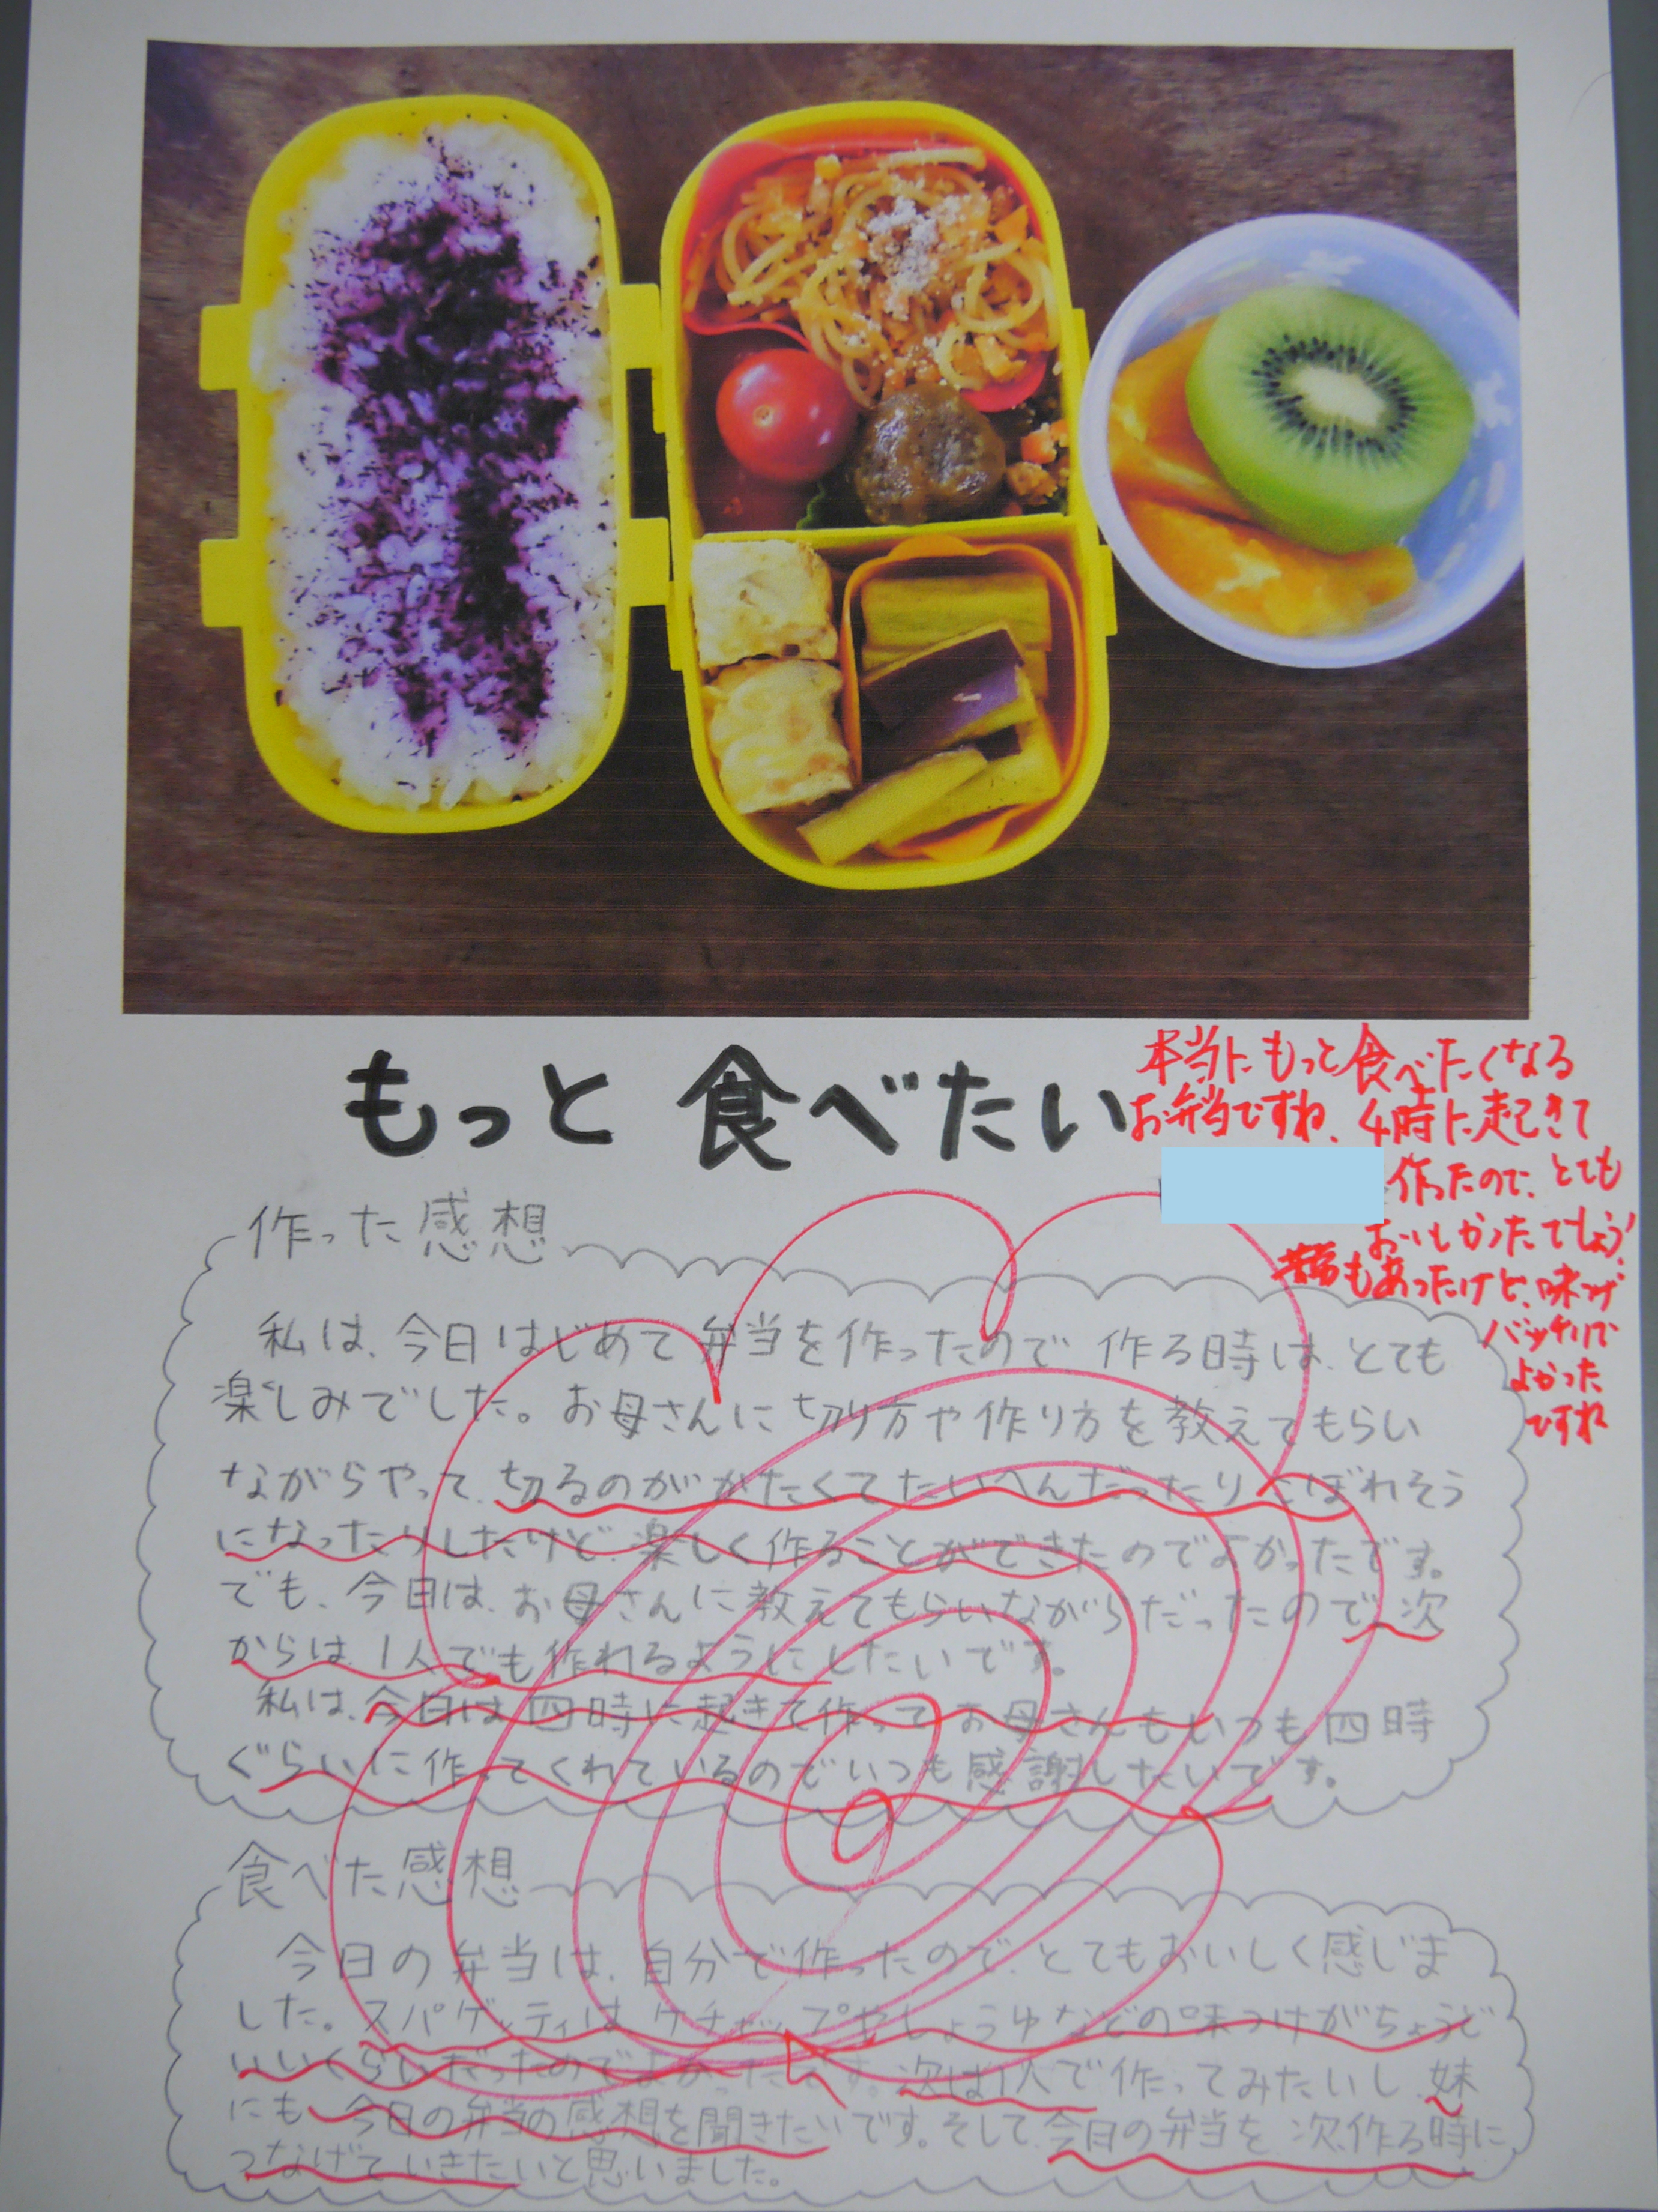 もっと 食べたい
本当にもっと食べたくなる
お弁当ですね、4時に起きて
作ったので、とても
おいしかったでしょう!
もあったけど、味つけ
バッチリで
よかった
ですね
作った感想
私は、今日はじめて弁当を作ったので 作る時は、とても
楽しみでした。お母さんに切り方や作り方を教えてもらい
ながらやって、切るのがかたくてたいへんだったりこぼれそう
になったりしたけど、楽しく作ることができたのでよかったです。
でも、今日は、お母さんに教えてもらいながらだったので、次
からは、1人でも作れるようにしたいです。
私は、今日は四時に起きて作ってお母さんもいつも四時
ぐらいに作ってくれているのでいつも感謝したいです。
食べた感想
今日の弁当は、自分で作ったので、とてもおいしく感じま
した。スパゲッティは、ケチャップやしょうゆなどの味つけがちょうど
いいくらいだったのでよかったです。次は1人で作ってみたいし、妹
にも、今日の弁当の感想を聞きたいです。そして、今日の弁当を、次、作る時に
つなげていきたいと思いました。